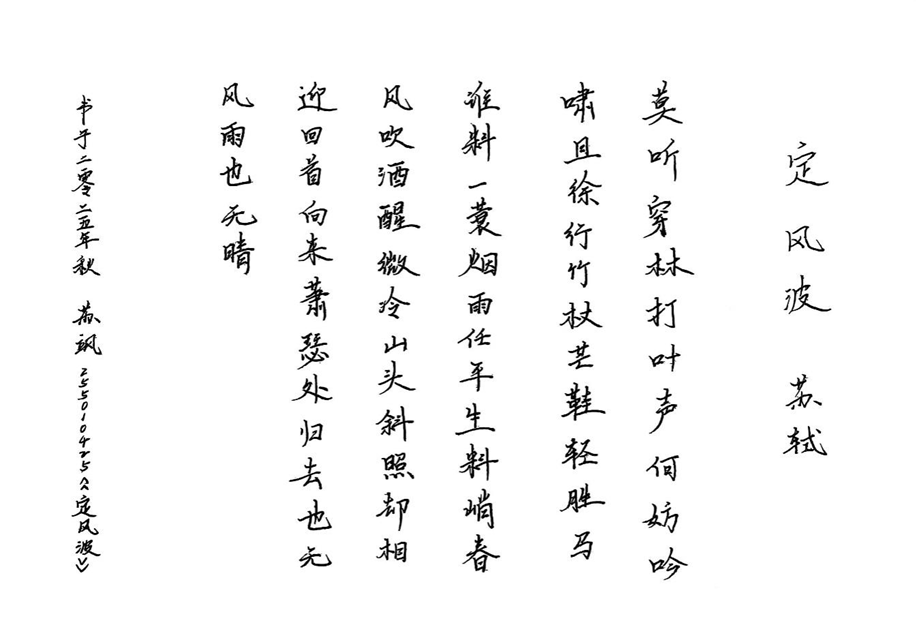 定风波 苏轼
莫听穿林打叶声何妨吟
啸且徐行竹杖芒鞋轻胜马
谁料一蓑烟雨任平生料峭春
风吹酒醒微冷山头斜照却相
迎回首向来萧瑟处归去也无
风雨也无晴
书于二零二五年秋 苏飒 255010425《定风波》